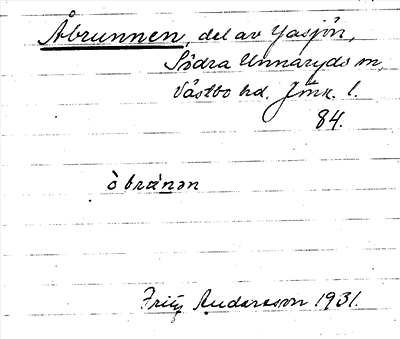 Åbrunnen, del av Yasjön,
Södra Unnaryds sn,
Västbo hd. Jönk. l.
84.
åbrænən
Fritz Andersson 1931.